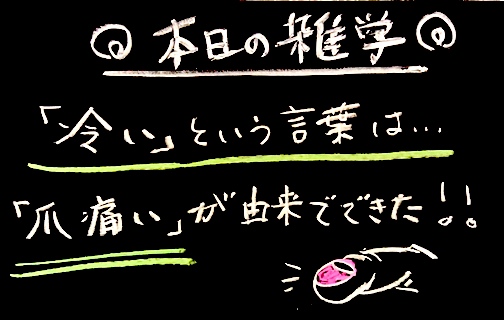 本日の雑学
「冷い」という言葉は…
「爪痛い」が由来でできた!!